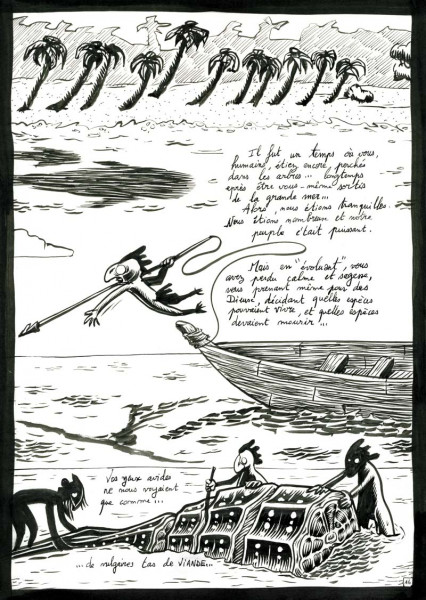 Il fut un temps où vous,
humains, étiez encore perchés
dans les arbres... longtemps
après être vous-même sortis
de la grande mer...
Alors, nous étions tranquilles.
Nous étions nombreux et notre
peuple était puissant.
Mais en "évoluant", vous
avez perdu calme et sagesse,
vous prenant même pour des
Dieux, décidant quelles espèces
pouvaient vivre, et quelles espèces
devaient mourir...
Vos yeux avides
ne nous voyaient
que comme...
...de vulgaires tas de VIANDE...